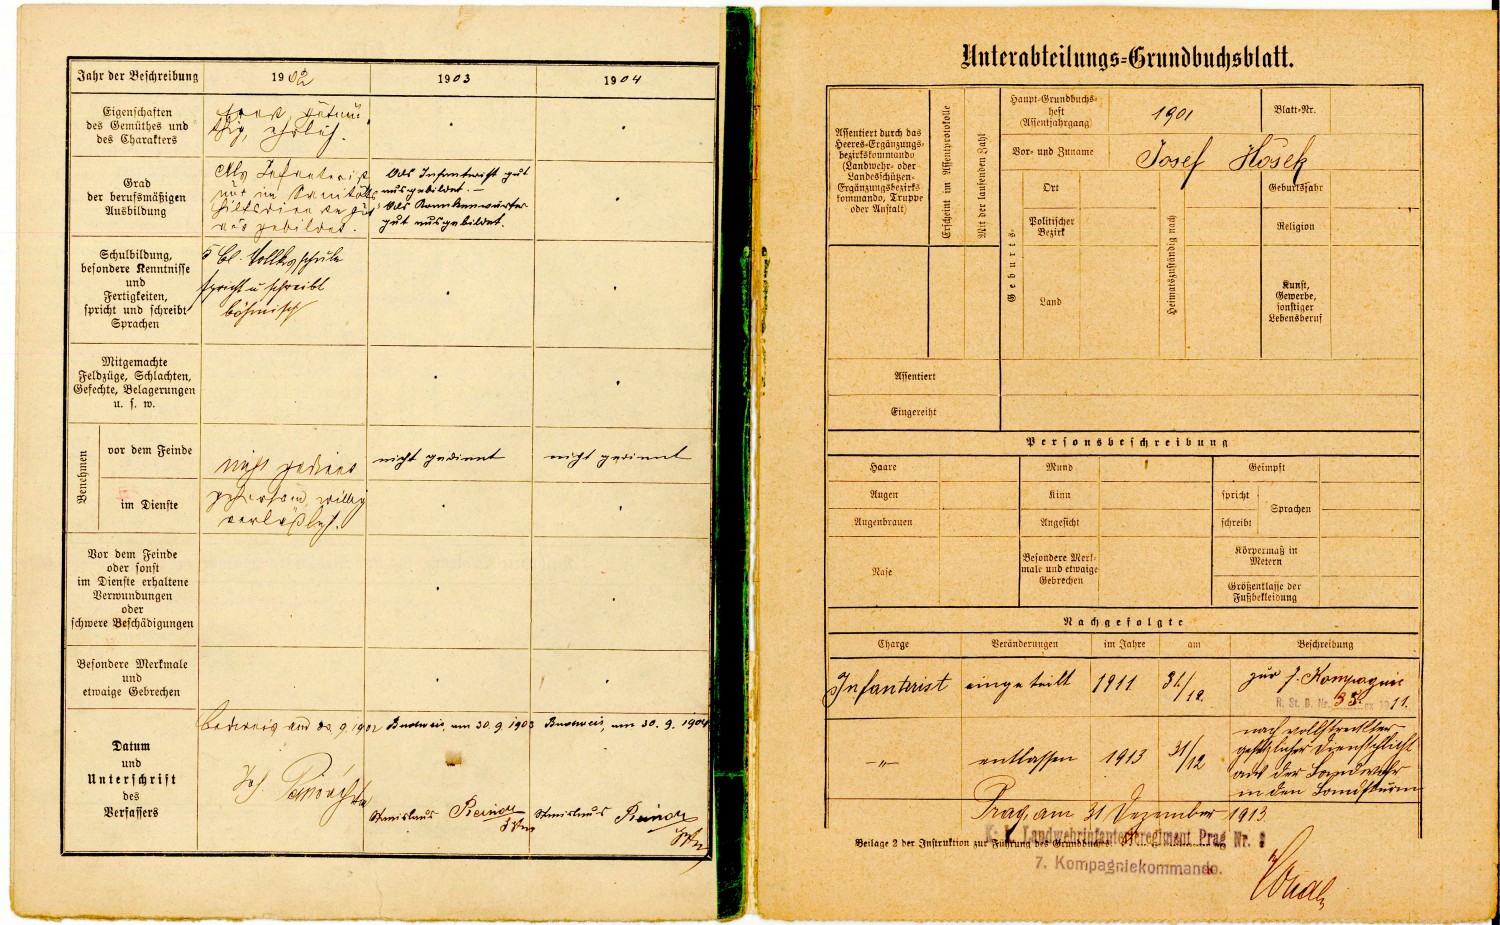 Jahr der Beschreibung 1902 1903 1904
Eigenschaften
des Gemüthes und
des Charakters
ernst, gutmü
thig, ehrlich.
Grad
der berufsmäßigen
Ausbildung
Als Infanterist
gut im Sanitäts
hilfsdienste gut
ausgebildet.
Als Infanterist gut
ausgebildet. –
Als Krankenwärter
gut ausgebildet.
Schulbildung,
besondere Kenntnisse
und
Fertigkeiten,
spricht und schreibt
Sprachen
5 Cl. Volksschule
spricht u schreibt
böhmisch
Mitgemachte
Feldzüge, Schlachten,
Gefechte, Belagerungen
u. s. w.
Benehmen
vor dem Feinde
nicht gedient nicht gedient nicht gedient
im Dienste
gehorsam, willig
verläßlich.
Vor dem Feinde
oder sonst
im Dienste erhaltene
Verwundungen
oder
schwere Beschädigungen
Besondere Merkmale
und
etwaige Gebrechen
Datum
und
Unterschrift
des
Verfassers
Budweis am 30. 9. 1902 Budweis, am 30. 9. 1903 Budweis, am 30. 9. 1904
Unterabteilungs=Grundbuchsblatt.
Assentiert durch das
Heeres-Ergänzungs-
bezirkskommando
(Landwehr- oder
Landesschützen-
Ergänzungsbezirks
kommando, Truppe
oder Anstalt)
Erscheint im Assentprotokolle
Mit der laufenden Zahl
Haupt-Grundbuchs-
heft
(Assentjahrgang)
1901
Blatt-Nr.
Vor- und Zuname
Josef Hošek
Geburts-
Ort
Politischer
Bezirk
Land
Heimatszuständig nach
Geburtsjahr
Religion
Kunst,
Gewerbe,
sonstiger
Lebensberuf
Assentiert
Eingereiht
Personsbeschreibung
Haare Mund Geimpft
Augen Kinn spricht
Sprachen
Augenbrauen Angesicht schreibt
Nase
Besondere Merk-
male und etwaige
Gebrechen
Körpermaß in
Metern
Größenklasse der
Fußbekleidung
Nachgefolgte
Charge Veränderungen im Jahre am Beschreibung
Infanterist eingeteilt 1911 31/12. zur 7. Kompagnie
R. St. B. Nr. 38 ex 1911.
–„– entlassen 1913 31/12
nach vollstreckter
gesetzlicher Dienstpflicht
aus der Landwehr
in den Landsturm
Prag, am 31 Dezember 1913
K. k. Landwehrinfanterieregiment Prag Nr. 8
Beilage 2 der Instruktion zur Führung des Grundbuchs.
7. Kompagniekommando.